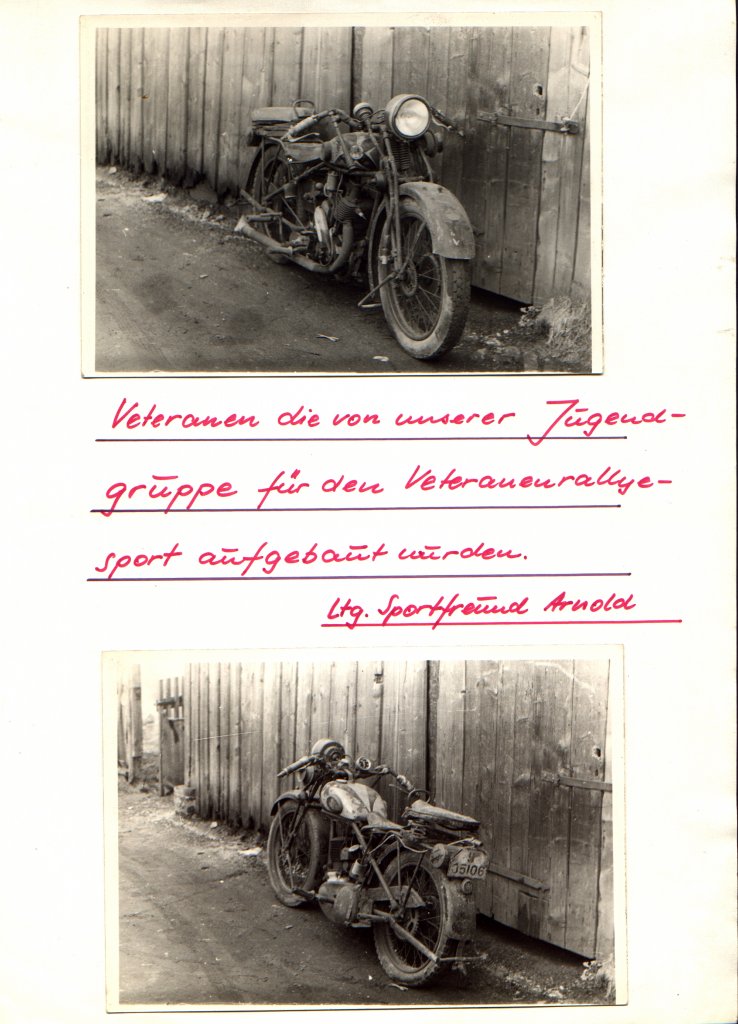 Veteranen die von unserer Jugend-
gruppe für den Veteranenrallye-
sport aufgebaut wurden.
Ltg. Sportfreund Arnold
35106